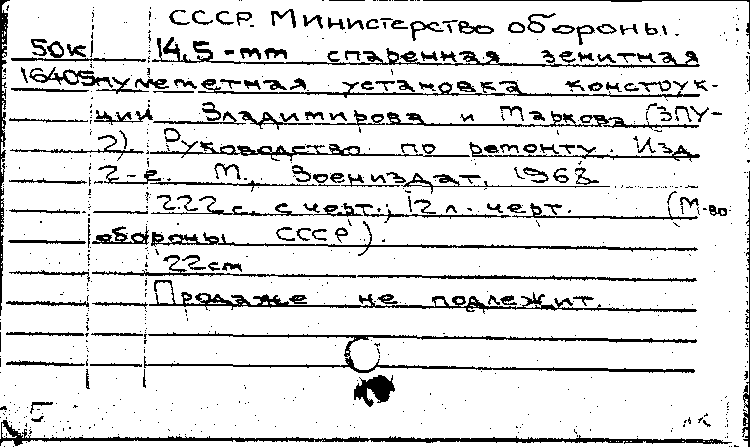 СССР. Министерство обороны.
50к 14,5-mm спаренная зенитная
16405 пулеметная установка конструк-
ции Владимирова и Маркова (ЗПУ-
2). Руководство по ремонту. Изд.
2-е. М., Воениздат, 1962.
222 с. с черт.; 12 л. черт. (М-во
обороны СССР).
22cm
Продаже не подлежит.